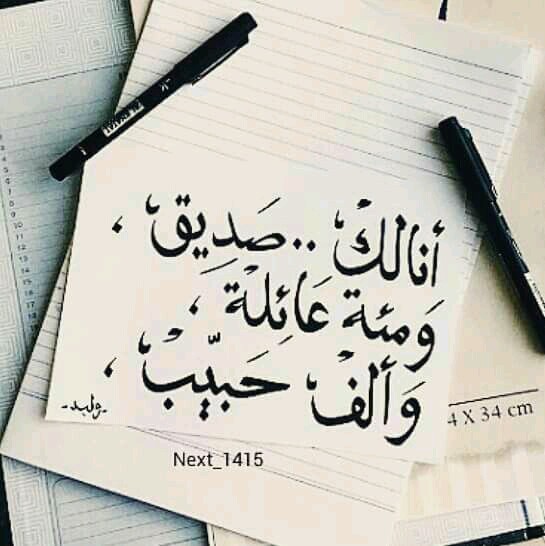 أنا لك .. صَدِيق ،
وَمئة عَائِلة ،
وَألف حَبيّب ،
-وليد-
4 X 34 cm
Next_1415